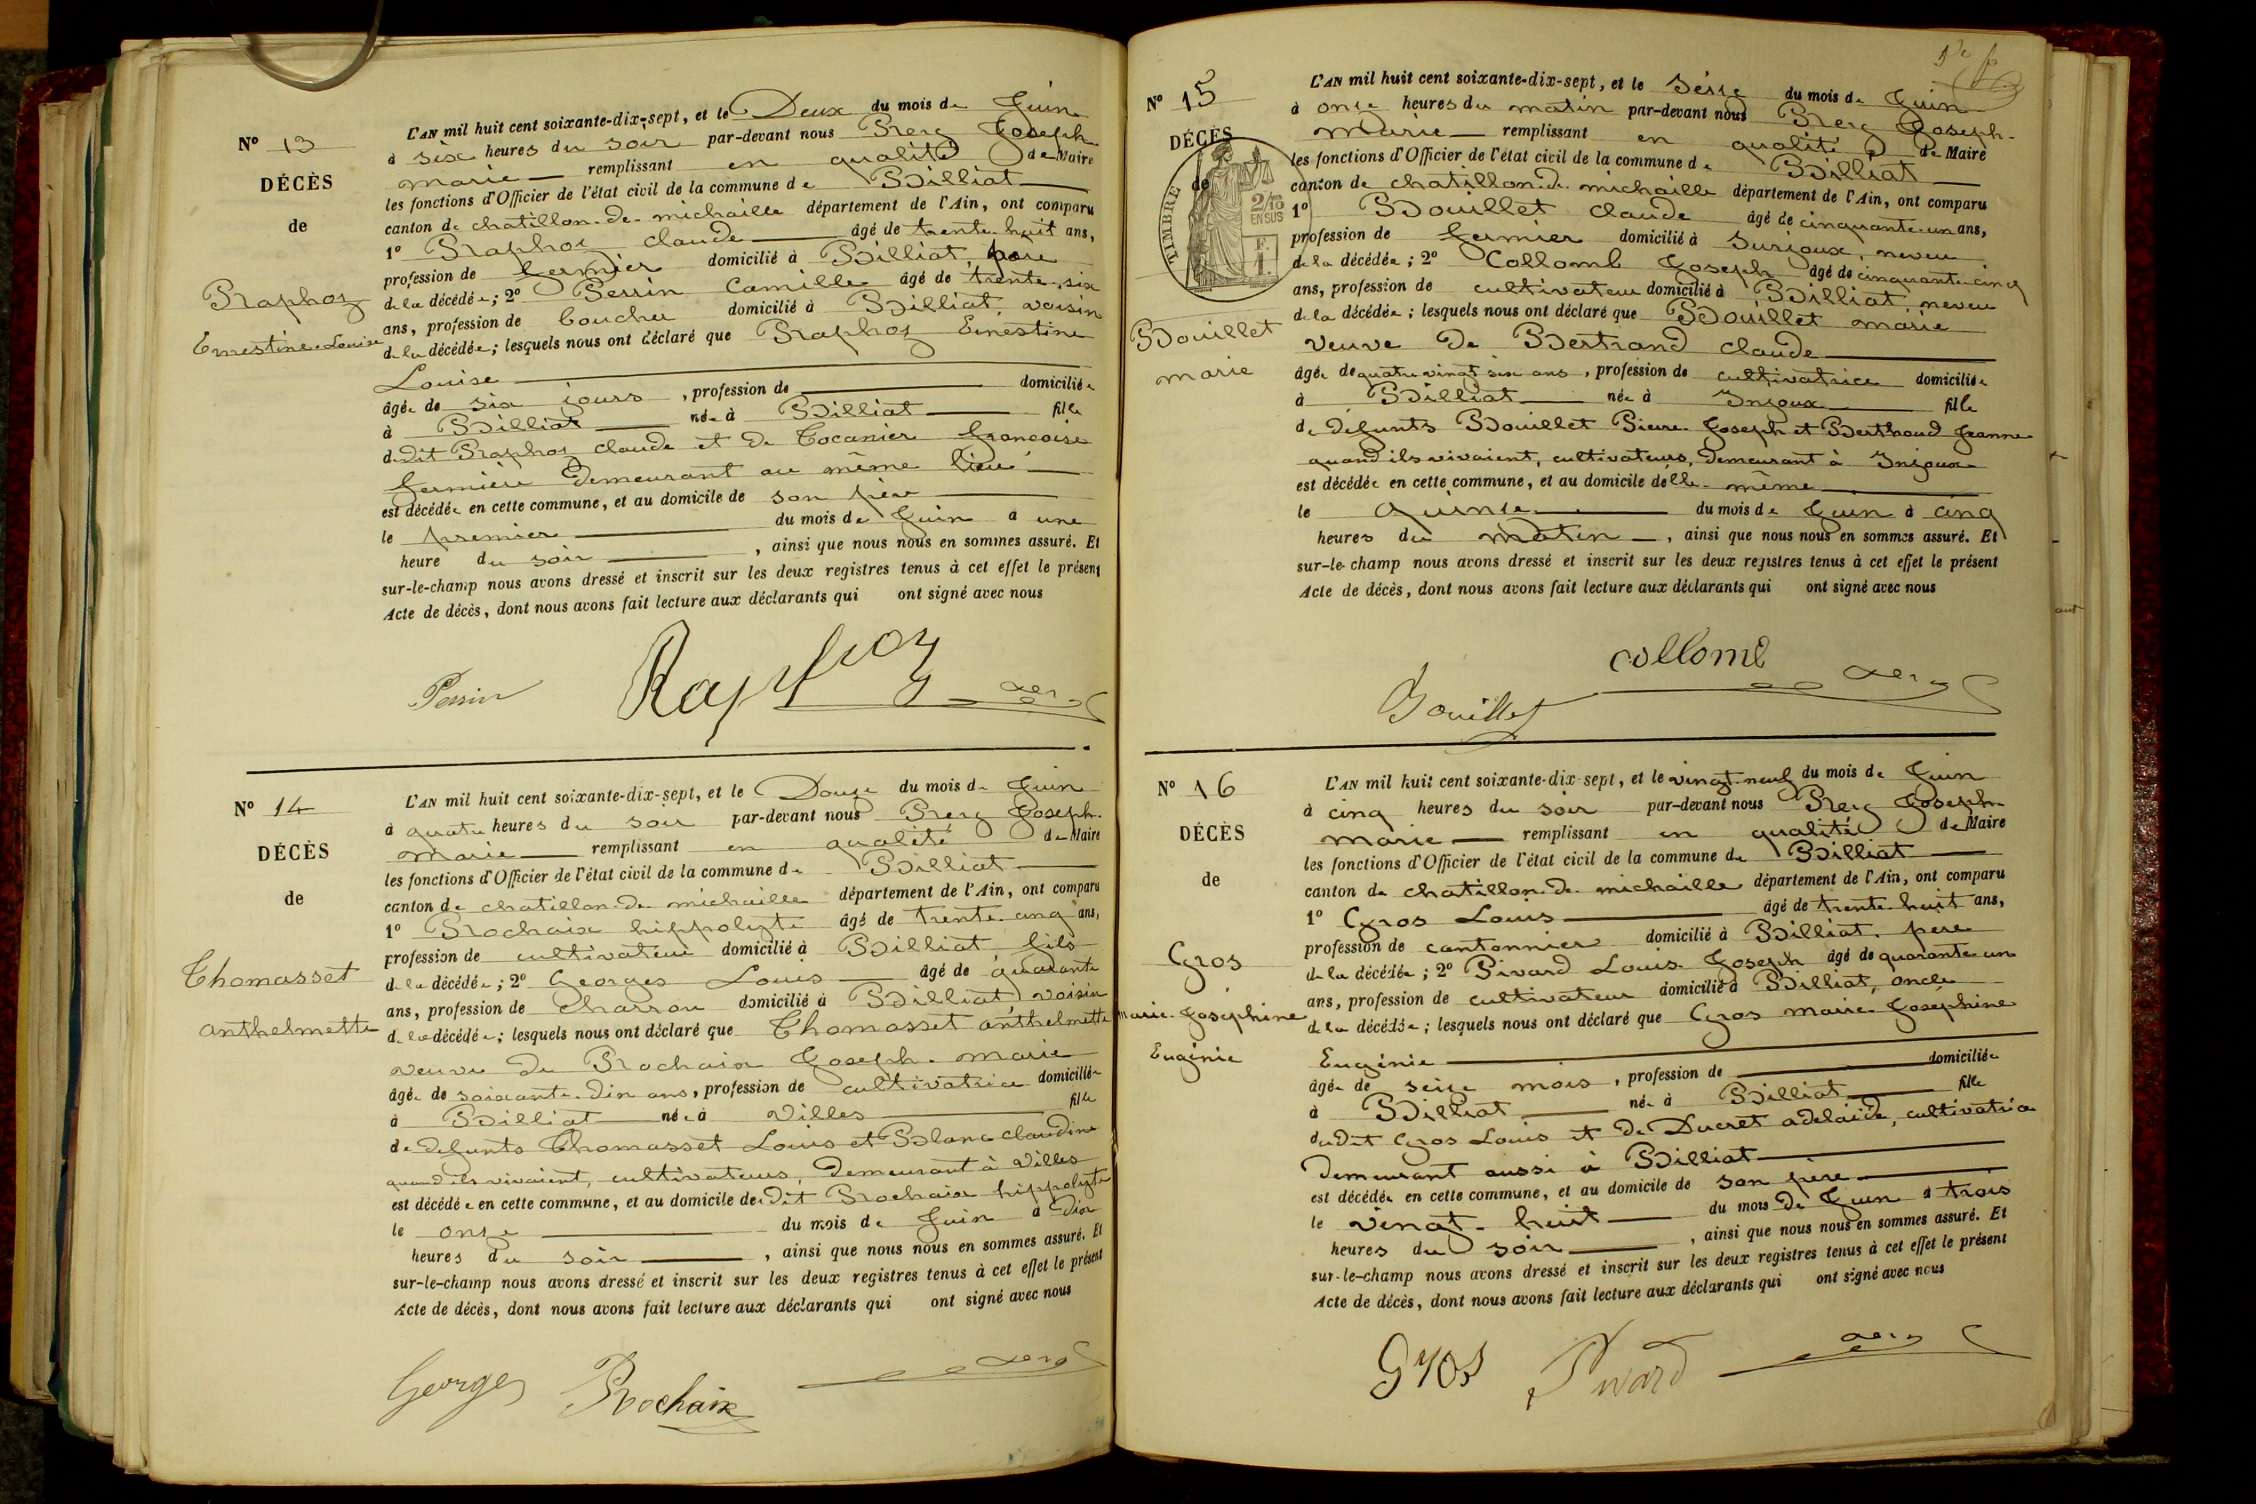 N° 13
DÉCÈS
de
Raphoz
Ernestine Louise
L'AN mil huit cent soixante-dix-sept, et le Deux du mois de Juin
à six heures du soir par-devant nous Rerg Joseph
marie remplissant en qualité de Maire
les fonctions d'Officier de l'état civil de la commune de Billiat
canton de chatillon-de-michaille département de l'Ain, ont comparu
1° Raphoz claude âgé de trente huit ans,
profession de fermier domicilié à Billiat, père
de la décédée; 2° Perrin Camille âgé de trente six
ans, profession de boucher domicilié à Billiat, voisin
de la décédée; lesquels nous ont déclaré que Raphoz Ernestine
Louise
âgée de six jours, profession de domiciliée
à Billiat née à Billiat fille
dudit Raphoz claude et de Tocanier françoise
fermière demeurant au même lieu
est décédée en cette commune, et au domicile de son père
le premier du mois de Juin à une
heure du soir, ainsi que nous nous en sommes assuré. Et
sur-le-champ nous avons dressé et inscrit sur les deux registres tenus à cet effet le présent
Acte de décès, dont nous avons fait lecture aux déclarants qui ont signé avec nous
Perrin Raphoz
N° 14
DÉCÈS
de
Thomasset
anthelmette
L'AN mil huit cent soixante-dix-sept, et le Douze du mois de Juin
à quatre heures du soir par-devant nous Rerg Joseph-
Marie remplissant en qualité de Maire
les fonctions d'Officier de l'état civil de la commune de Billiat
canton de chatillon-de michaille département de l'Ain, ont comparu
1° Rochaix hippolyte âgé de trente cinq ans,
profession de cultivateur domicilié à Billiat, fils
de la décédée; 2° Georges Louis âgé de quarante
ans, profession de charron domicilié à Billiat voisin
de la décédée; lesquels nous ont déclaré que Thomasset anthelmette
veuve de Rochaix Joseph-marie
âgée de soixante-dix ans, profession de cultivatrice domiciliée
à Billiat née à Villes fille
de defunts Thomasset Louis et Blanc claudine
quand ils vivaient, cultivateurs, demeurant à Villes
est décédée en cette commune, et au domicile dudit Rochaix hippolyte
le onze du mois de Juin à dix
heures du soir, ainsi que nous nous en sommes assuré. Et
sur-le-champ nous avons dressé et inscrit sur les deux registres tenus à cet effet le présent
Acte de décès, dont nous avons fait lecture aux déclarants qui ont signé avec nous
Georges Rochaix
N° 15
DÉCÈS
de
TIMBRE
2/10
EN SUS
1 F.
Bouillet
marie
L'AN mil huit cent soixante-dix-sept, et le Seize du mois de Juin
à onze heures du matin par-devant nous Rerg Joseph-
Marie remplissant en qualité de Maire
les fonctions d'Officier de l'état civil de la commune de Billiat
canton de chatillon-de-michaille département de l'Ain, ont comparu
1° Bouillet claude âgé de cinquante-un ans,
profession de fermier domicilié à Surjoux, neveu
de la décédée; 2° Collomb Joseph âgé de cinquante-cinq
ans, profession de cultivateur domicilié à Billiat neveu
de la décédée; lesquels nous ont déclaré que Bouillet marie
veuve de Bertrand claude
âgée de quatre vingt six ans, profession de cultivatrice domiciliée
à Billiat née à Injoux fille
de defunts Bouillet Pierre-Joseph et Berthoud Jeanne
quand ils vivaient, cultivateurs, demeurant à Injoux
est décédée en cette commune, et au domicile d'elle-même
le quinze du mois de Juin à cinq
heures du matin, ainsi que nous nous en sommes assuré. Et
sur-le-champ nous avons dressé et inscrit sur les deux registres tenus à cet effet le présent
Acte de décès, dont nous avons fait lecture aux déclarants qui ont signé avec nous
collomb
Bouillet
N° 16
DÉCÈS
de
Gros
marie-Joséphine
Eugénie
L'AN mil huit cent soixante-dix-sept, et le vingt-neuf du mois de Juin
à cinq heures du soir par-devant nous Rerg Joseph-
marie remplissant en qualité de Maire
les fonctions d'Officier de l'état civil de la commune de Billiat
canton de chatillon-de-michaille département de l'Ain, ont comparu
1° Gros Louis âgé de trente-huit ans,
profession de cantonnier domicilié à Billiat, père
de la décédée; 2° Pivard Louis-Joseph âgé de quarante-un
ans, profession de cultivateur domicilié à Billiat, oncle
de la décédée; lesquels nous ont déclaré que Gros marie-Joséphine
Eugénie
âgée de seize mois, profession de domiciliée
à Billiat née à Billiat fille
dudit Gros Louis et de Ducret adelaïde, cultivatrice
demeurant aussi à Billiat
est décédée en cette commune, et au domicile de son père
le vingt-huit du mois de Juin à trois
heures du soir, ainsi que nous nous en sommes assuré. Et
sur-le-champ nous avons dressé et inscrit sur les deux registres tenus à cet effet le présent
Acte de décès, dont nous avons fait lecture aux déclarants qui ont signé avec nous
Gros Pivard